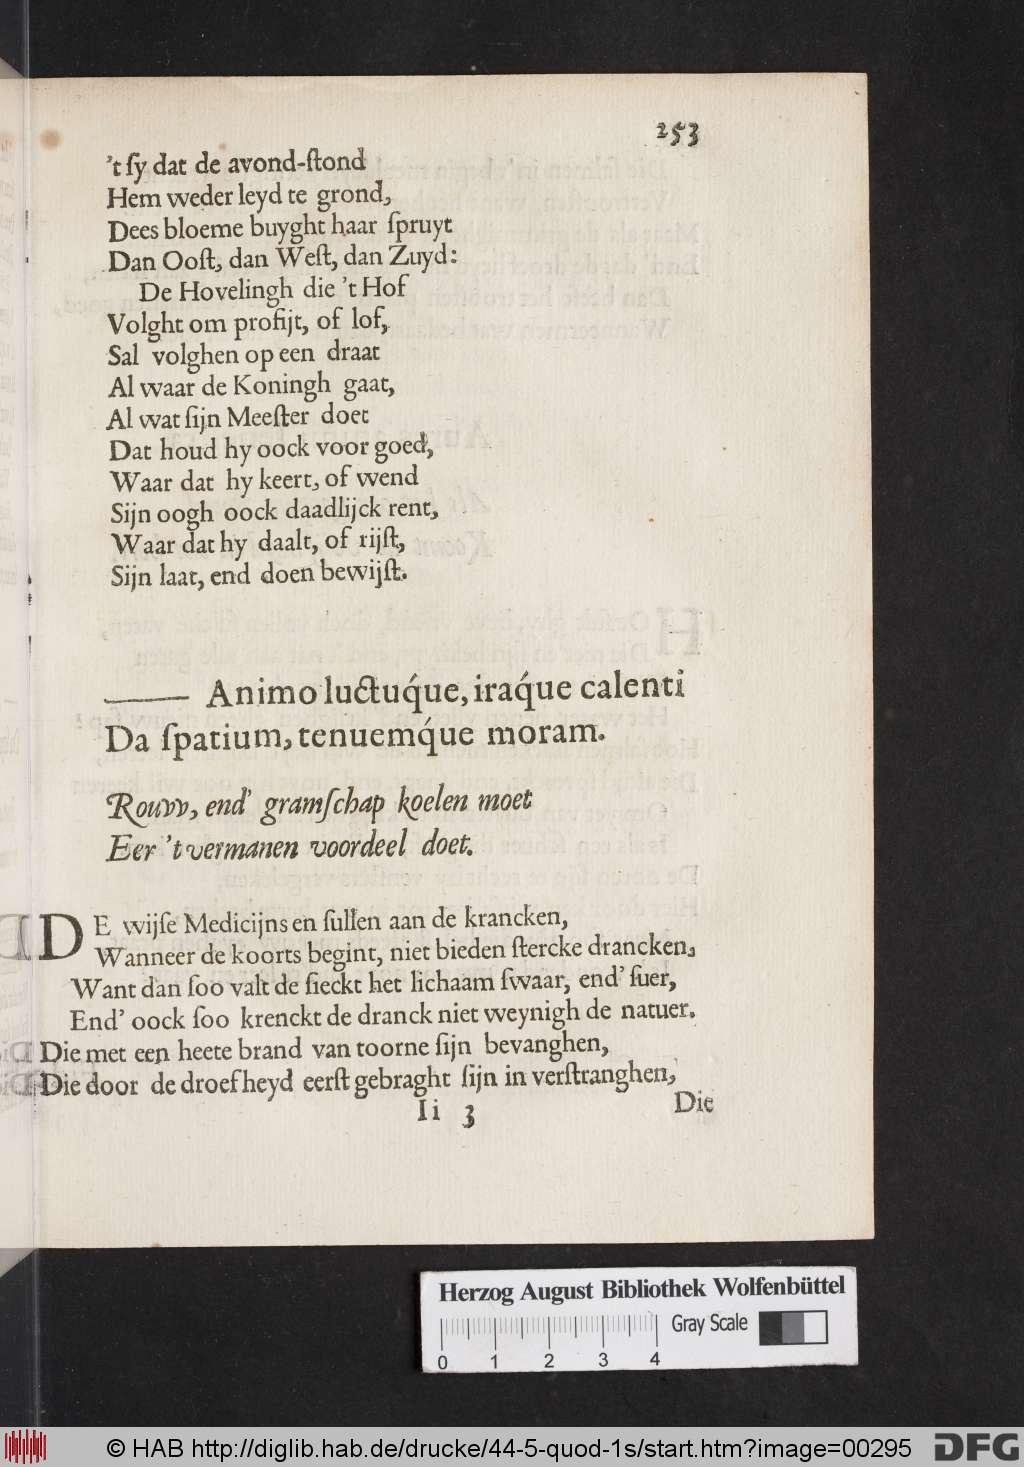 253
’t ſy dat de avond-ſtond
Hem weder leyd te grond,
Dees bloeme buyght haar ſpruyt
Dan Ooſt, dan Weſt, dan Zuyd:
De Hovelingh die ’t Hof
Volght om profijt, of lof,
Sal volghen op een draat
Al waar de Koningh gaat,
Al wat ſijn Meeſter doet
Dat houd hy oock voor goed,
Waar dat hy keert, of wend
Sijn oogh oock daadlijck rent,
Waar dat hy daalt, of rijſt,
Sijn laat, end doen bewijſt.
—— Animo luctuq́ue, iraq́ue calenti
Da ſpatium, tenuemq́ue moram.
Rouvv, end’ gramſchap koelen moet
Eer ’t vermanen voordeel doet.
DE wijſe Medicijns en ſullen aan de krancken,
Wanneer de koorts begint, niet bieden ſtercke drancken,
Want dan ſoo valt de ſieckt het lichaam ſwaar, end’ ſuer,
End’ oock ſoo krenckt de dranck niet weynigh de natuer.
Die met een heete brand van toorne ſijn bevanghen,
Die door de droefheyd eerſt gebraght ſijn in verſtranghen,
Ii 3 Die
Herzog August Bibliothek Wolfenbüttel
Gray Scale
0 1 2 3 4
© HAB http://diglib.hab.de/drucke/44-5-quod-1s/start.htm?image=00295 DFG